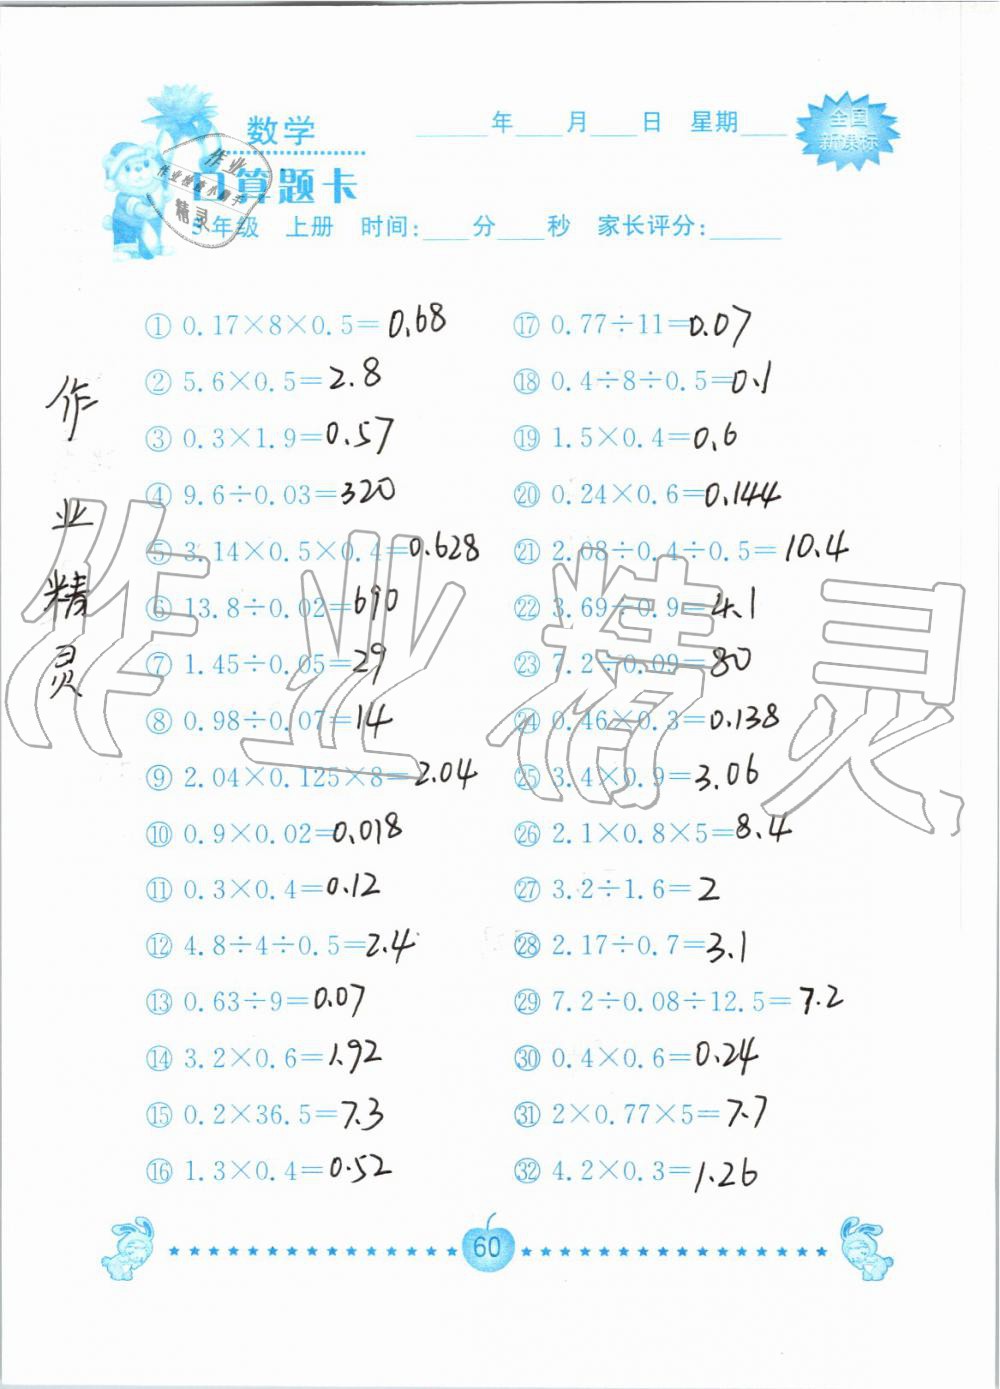 数学 ____年____月____日 星期____
全国
新课标
口算题卡
5年级 上册 时间:____分____秒 家长评分:____
作业
作业检查小帮手
精灵
作
业
精
灵
作业精灵
① 0.17×8×0.5=0.68
② 5.6×0.5=2.8
③ 0.3×1.9=0.57
④ 9.6÷0.03=320
⑤ 3.14×0.5×0.4=0.628
⑥ 13.8÷0.02=690
⑦ 1.45÷0.05=29
⑧ 0.98÷0.07=14
⑨ 2.04×0.125×8=2.04
⑩ 0.9×0.02=0.018
⑪ 0.3×0.4=0.12
⑫ 4.8÷4÷0.5=2.4
⑬ 0.63÷9=0.07
⑭ 3.2×0.6=1.92
⑮ 0.2×36.5=7.3
⑯ 1.3×0.4=0.52
⑰ 0.77÷11=0.07
⑱ 0.4÷8÷0.5=0.1
⑲ 1.5×0.4=0.6
⑳ 0.24×0.6=0.144
㉑ 2.08÷0.4÷0.5=10.4
㉒ 3.69÷0.9=4.1
㉓ 7.2÷0.09=80
㉔ 0.46×0.3=0.138
㉕ 3.4×0.9=3.06
㉖ 2.1×0.8×5=8.4
㉗ 3.2÷1.6=2
㉘ 2.17÷0.7=3.1
㉙ 7.2÷0.08÷12.5=7.2
㉚ 0.4×0.6=0.24
㉛ 2×0.77×5=7.7
㉜ 4.2×0.3=1.26
60